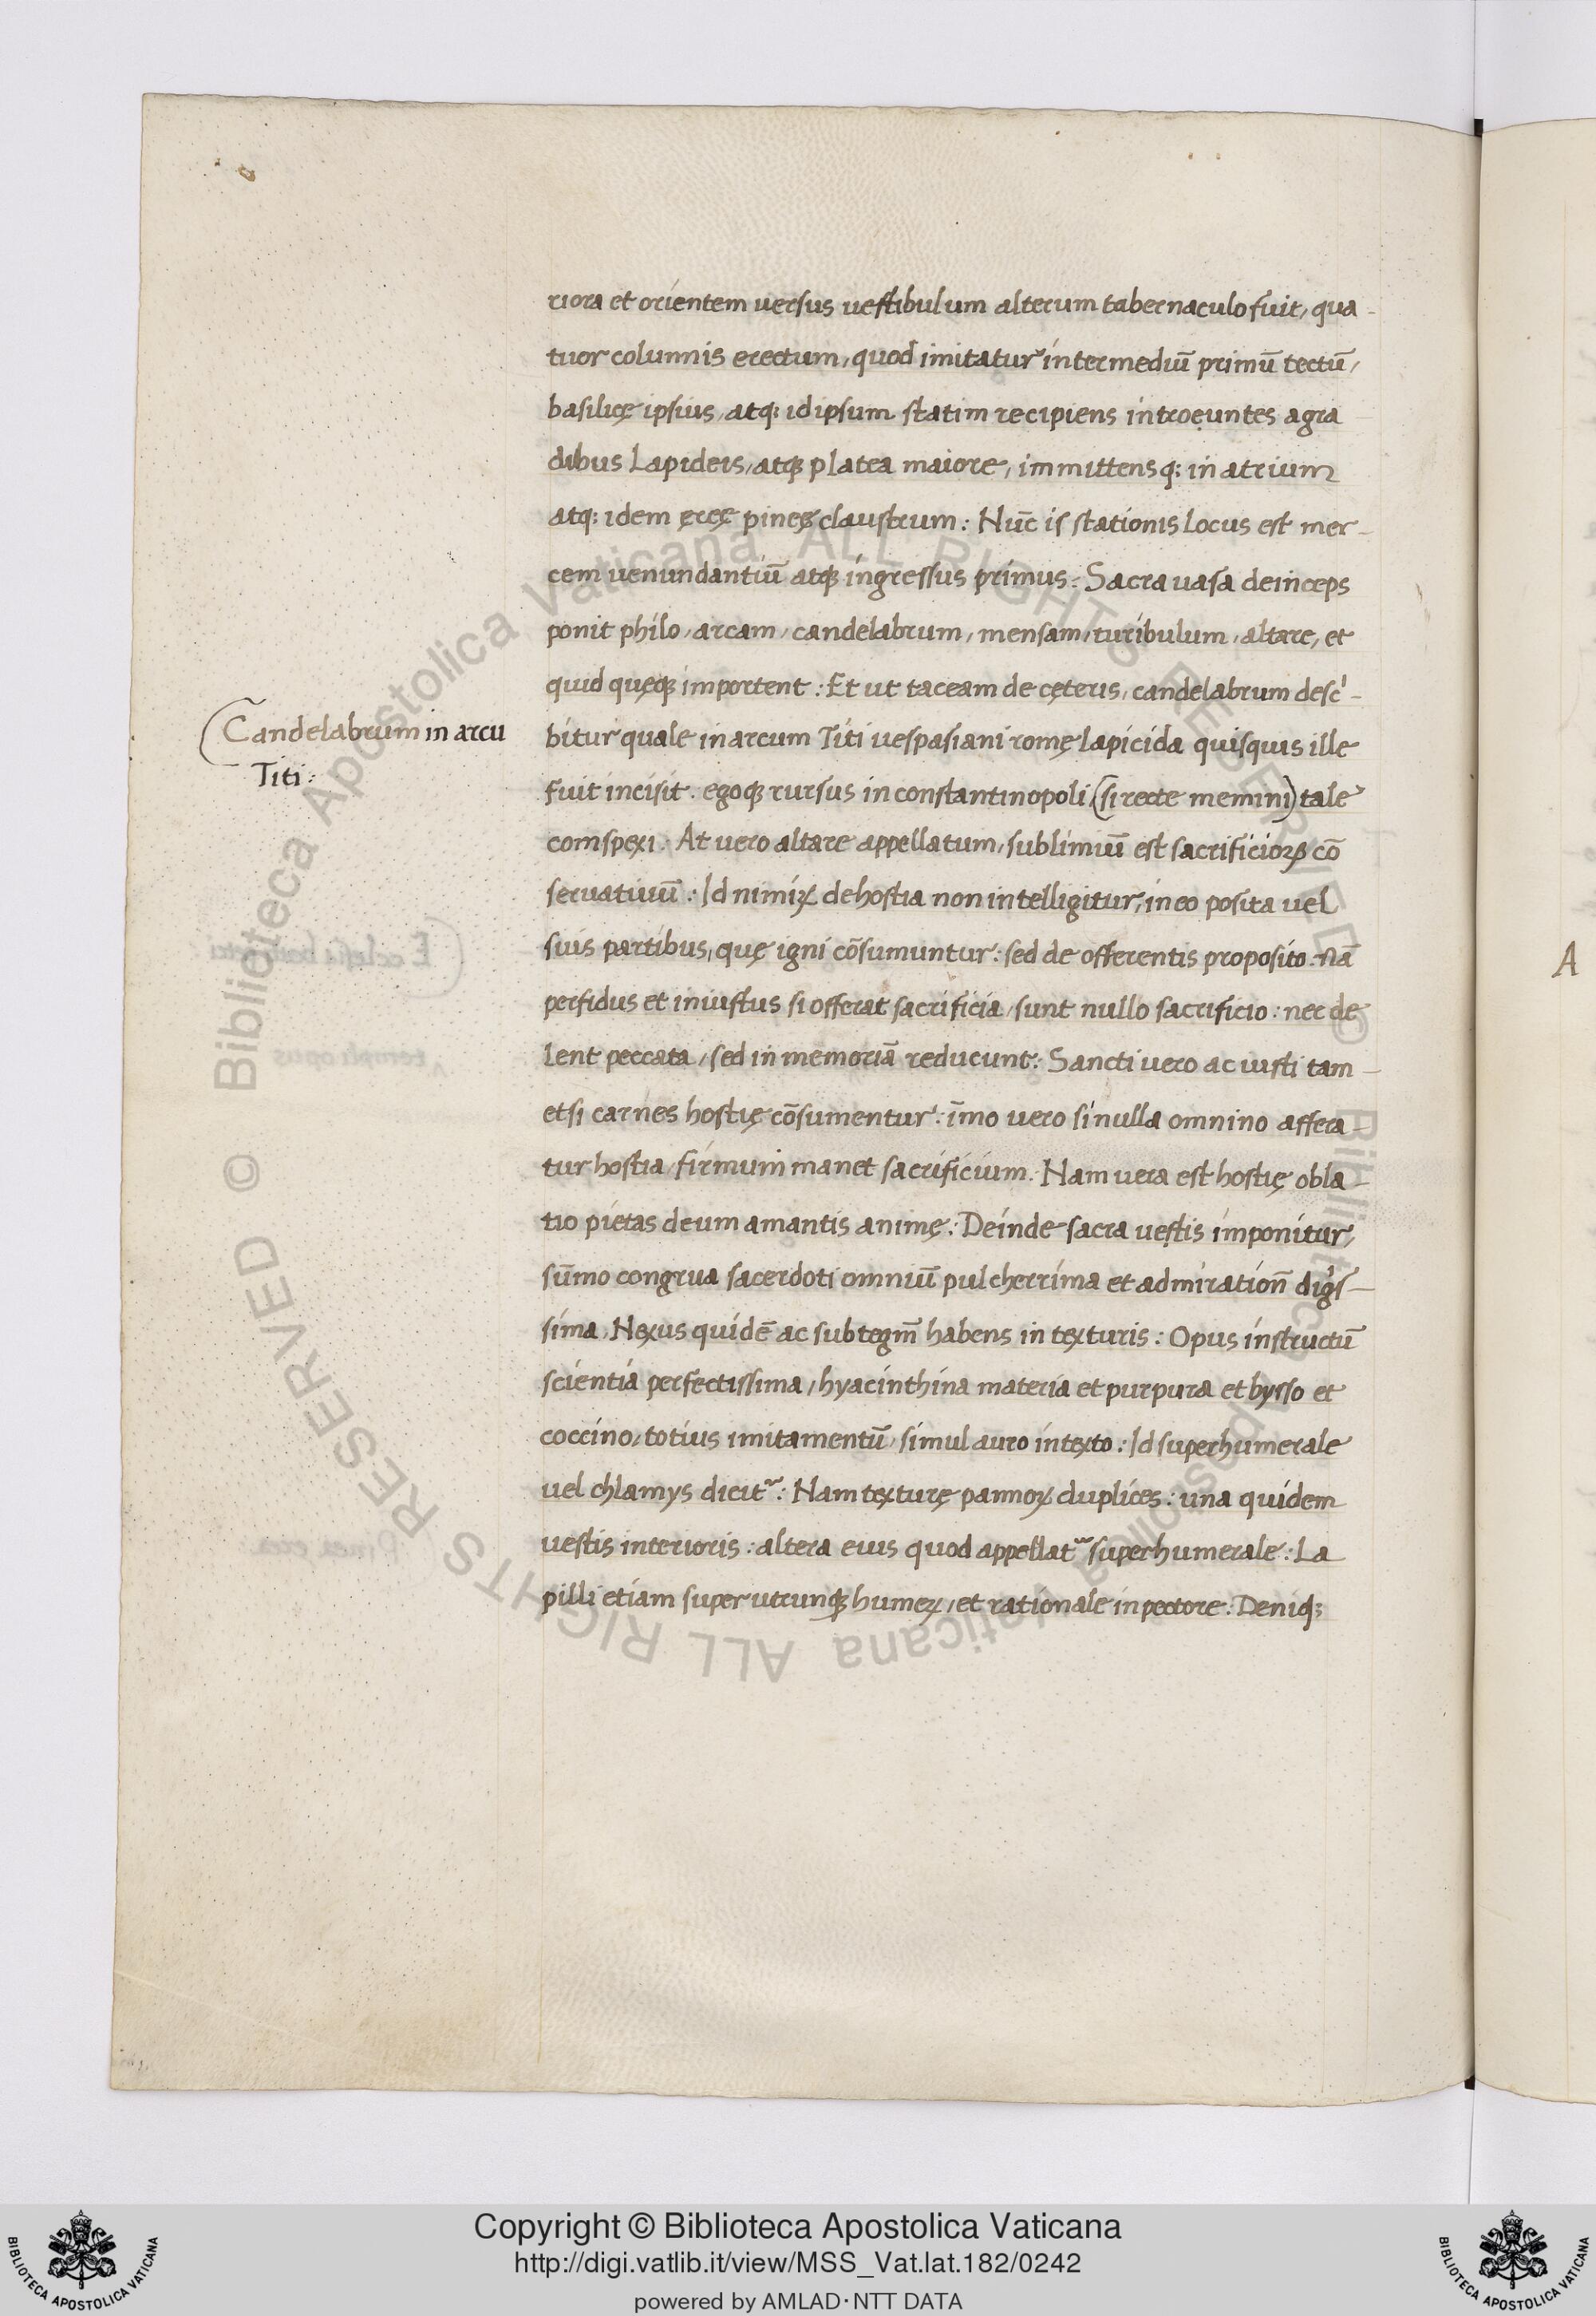 riora et orientem versus vestibulum alterum tabernaculo fuit, qua-
tuor columnis erectum, quod imitatur intermediū primū tectū,
basilicę ipsius, atq; id ipsum statim recipiens introeuntes a gra
dibus Lapideis, atq; platea maiore, immittensq; in atrium
atq; idem ęreę pineę claustrum: Nūc is stationis Locus est mer-
cem venundantiū atq; ingressus primus: Sacra vasa deinceps
ponit philo, arcam, candelabrum, mensam, turibulum, altare, et
quid quęq; importent: Et ut taceam de cęteris, candelabrum desc'-
bitur quale in arcum Titi vespasiani romę lapicida quisquis ille
fuit incisit. egoq; rursus in constantinopoli (si recte memini) tale
comspexi. At vero altare appellatum, sublimiū est sacrificioꝝ cō
servativū: Id nimiꝝ de hostia non intelligitur, in eo posita vel
suis partibus, quę igni cōsumuntur: sed de offerentis proposito. nā
perfidus et iniustus si offerat sacrificia, sunt nullo sacrificio: nec de
lent peccata, sed in memoriā reducunt: Sancti vero ac iusti tam-
etsi carnes hostię cōsumentur: īmo vero si nulla omnino affera-
tur hostia firmum manet sacrificium. Nam vera est hostię obla-
tio pietas deum amantis animę: Deinde sacra vestis imponitur,
sūmo congrua sacerdoti omniū pulcherrima et admiration̄ dig̓s-
sima. Nexus quidē ac subtegm̄ habens in texturis: Opus instructū
scientia perfectissima, hyacinthina materia et purpura et bysso et
coccino, totius imitamentū, simul auro intexto: Id superhumerale
vel chlamys dicit᷑: Nam texturę pannoꝝ duplices: una quidem
vestis interioris: altera eius quod appellat᷑ superhumerale: La
pilli etiam super utrunq; humeꝝ, et rationale in pectore: Deniq;
Candelabrum in arcu
Titi:
A
Copyright © Biblioteca Apostolica Vaticana
http://digi.vatlib.it/view/MSS_Vat.lat.182/0242
powered by AMLAD·NTT DATA
BIBLIOTECA APOSTOLICA VATICANA
BIBLIOTECA APOSTOLICA VATICANA
© Biblioteca Apostolica Vaticana ALL RIGHTS RESERVED
© Biblioteca Apostolica Vaticana ALL RIGHTS RESERVED